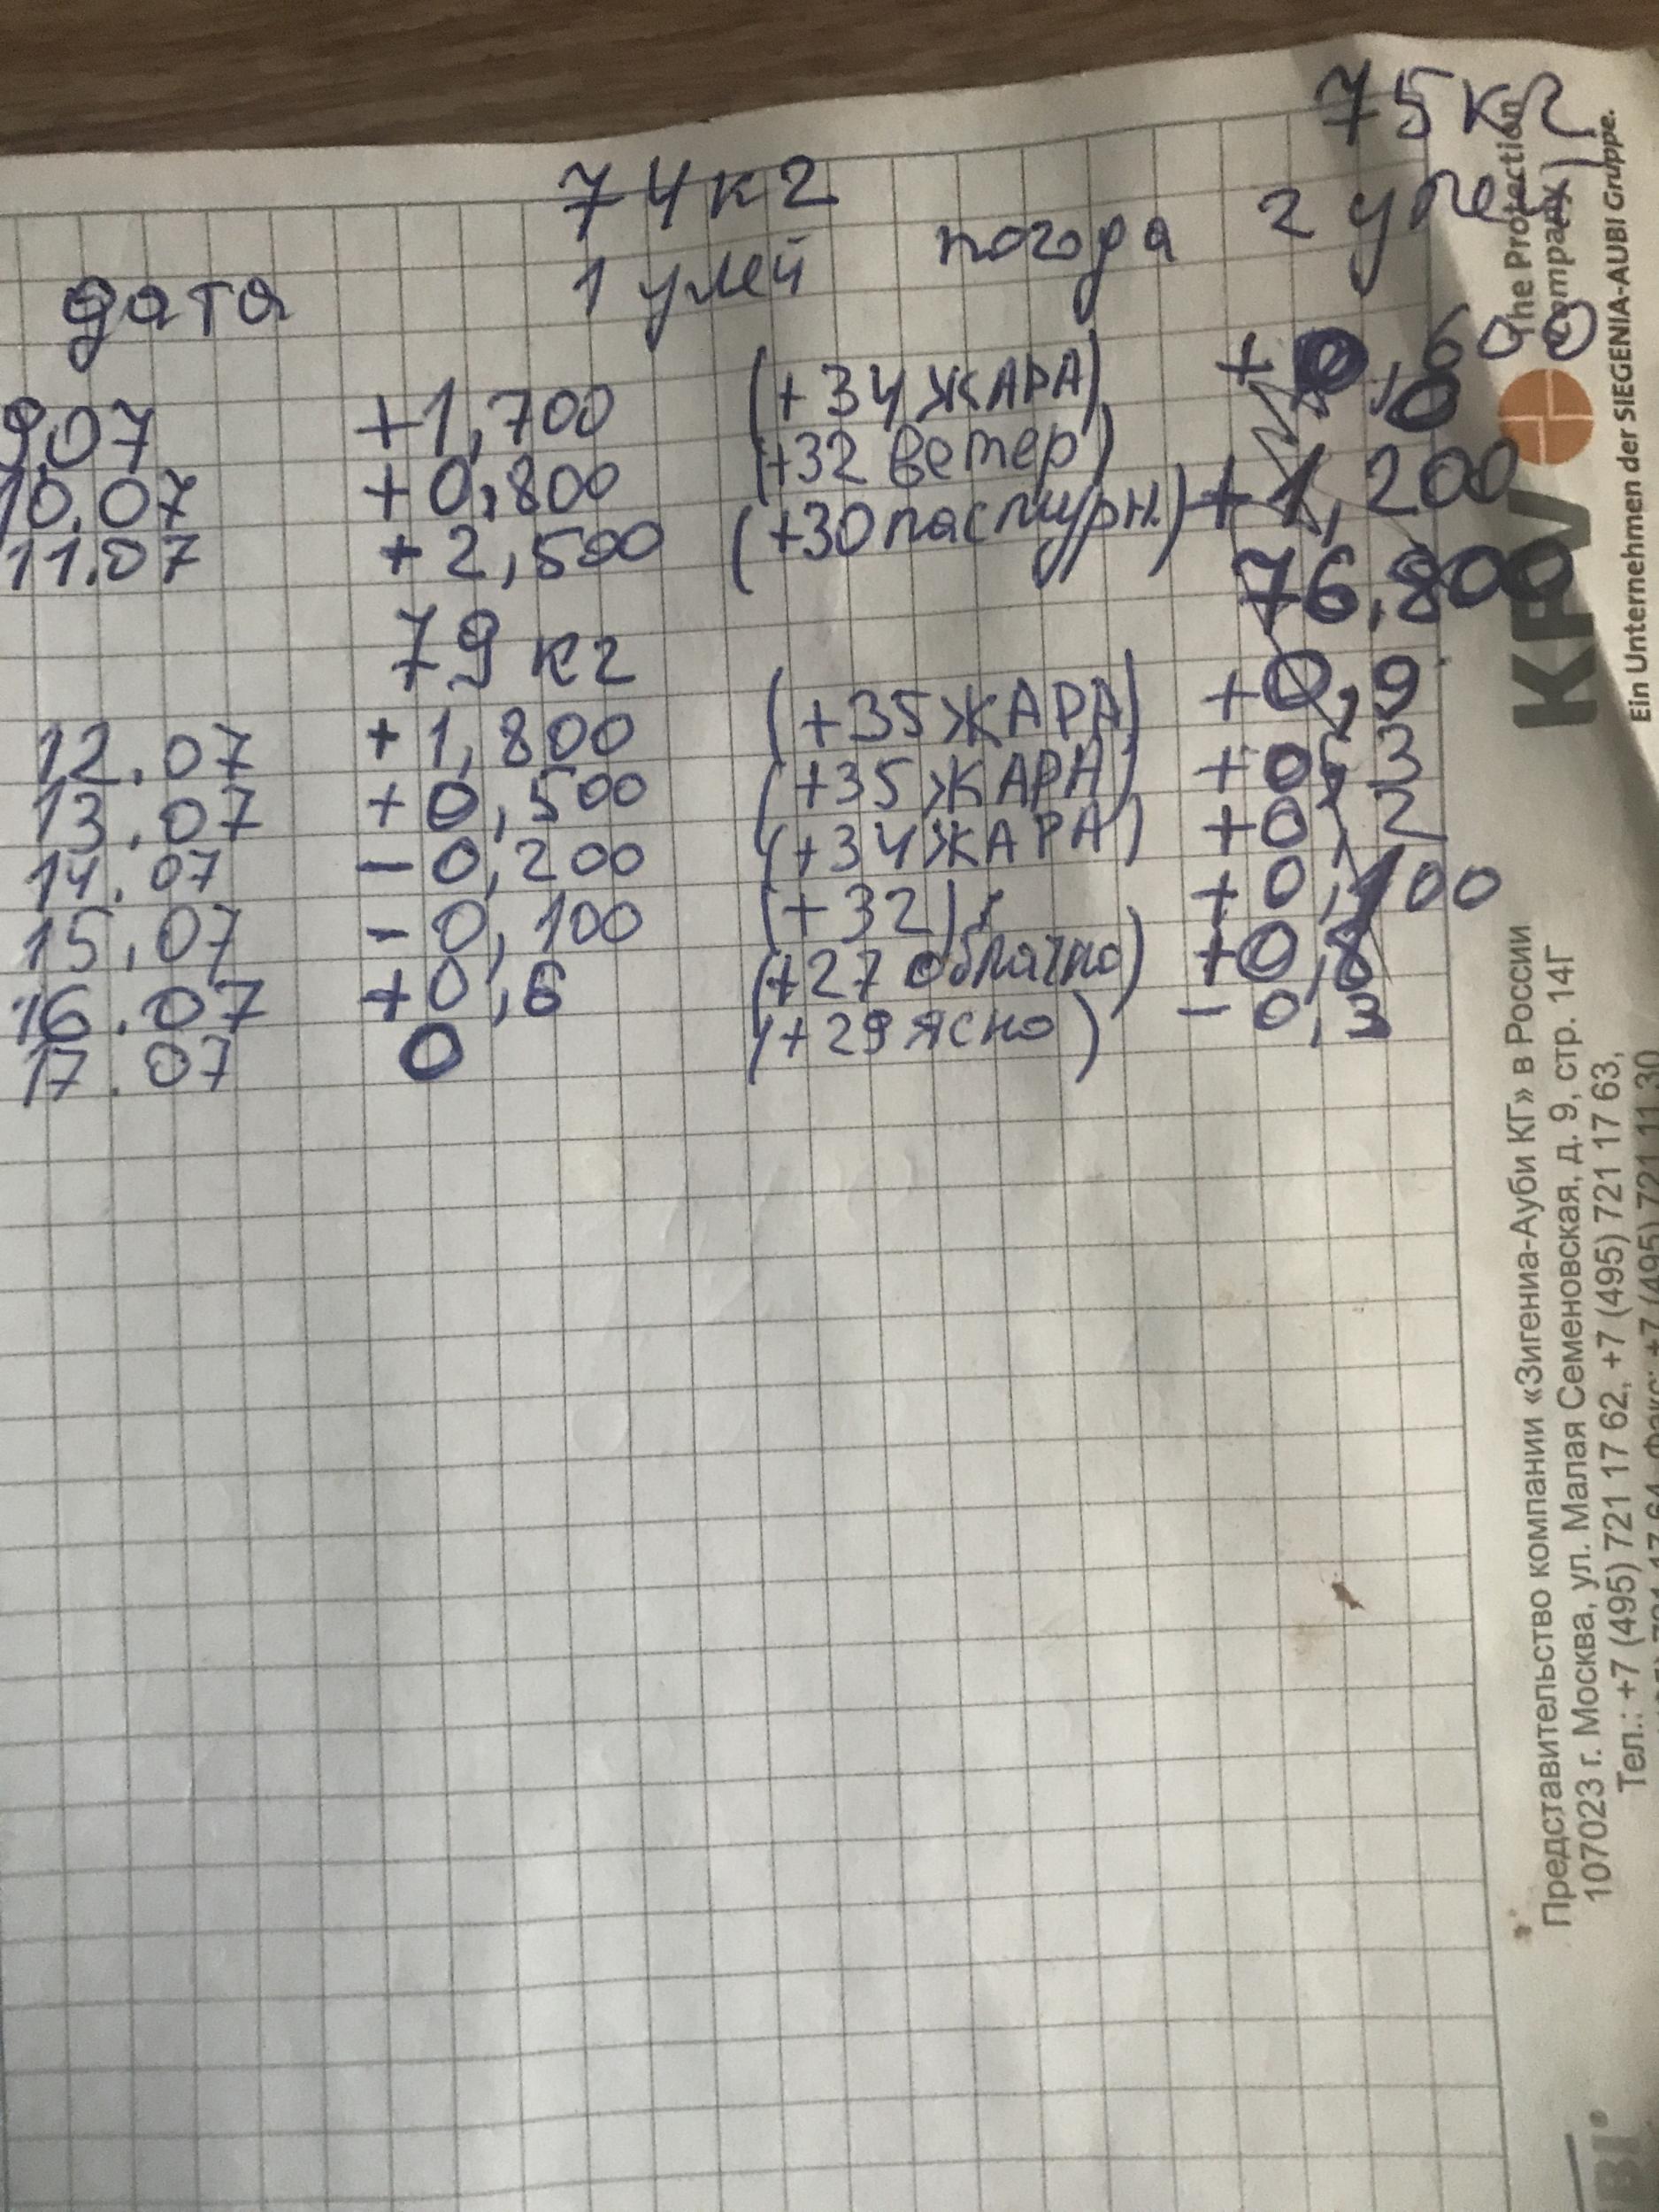 75 кг
74 кг
дата 1 улей погода 2 улей
9.07 +1,700 (+34 ЖАРА) +0,600
10.07 +0,800 (+32 ветер) 0
11.07 +2,500 (+30 пасмурн.) +1,200
79 кг 76,800
12.07 +1,800 (+35 ЖАРА) +0,9
13.07 +0,500 (+35 ЖАРА) +0,3
14.07 -0,200 (+34 ЖАРА) +0,2
15.07 -0,100 (+32) +0,100
16.07 +0,6 (+27 облачно) +0,8
17.07 0 (+29 ясно) -0,3
The Protection
Company
Ein Unternehmen der SIEGENIA-AUBI Gruppe.
KFV
Представительство компании «Зигениа-Ауби КГ» в России
107023 г. Москва, ул. Малая Семеновская, д. 9, стр. 14Г
Тел.: +7 (495) 721 17 62, +7 (495) 721 17 63,